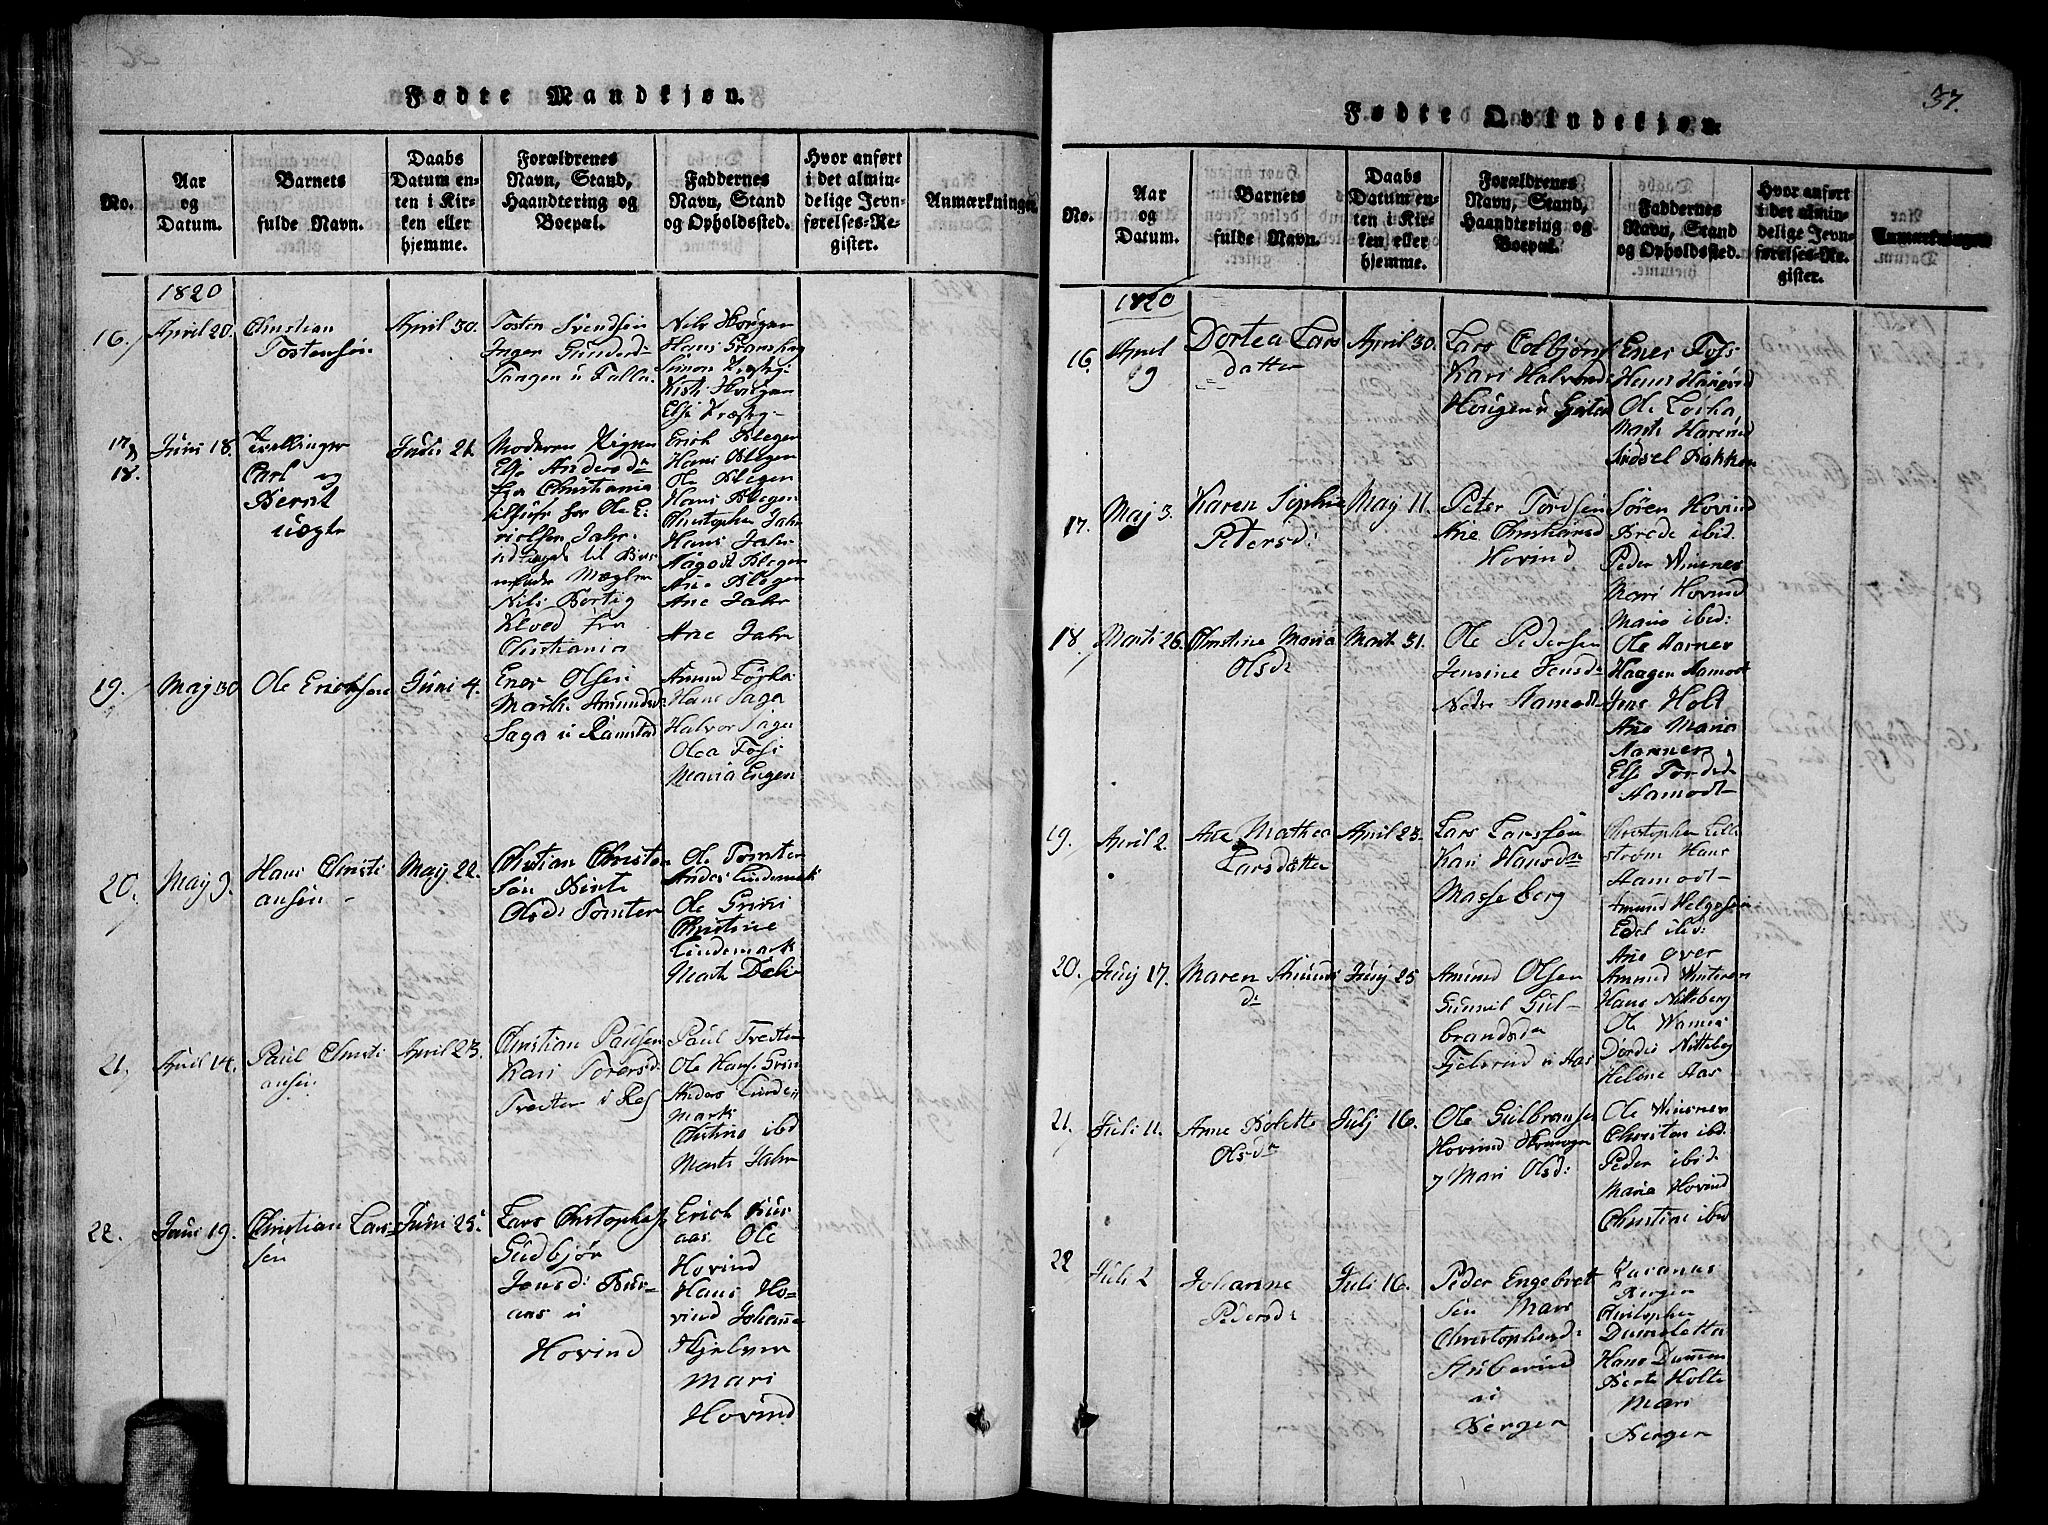 37.
Fødte Mandkjøn.
No.
Aar
og
Datum.
Barnets
fulde Navn.
Daabs
Datum en-
ten i Kir-
ken eller
hjemme.
Forældrenes
Navn, Stand,
Haandtering og
Boepæl.
Faddernes
Navn, Stand
og Opholdssted.
Hvor anført
i det almin-
delige Jevn-
førelses-Re-
gister.
Anmærkninger.
1820
16.
April 20.
Christian
Tostensøn
April 30.
Tosten Svendsen
Inger Gunders
Taagen u Falla
Nils Hougen
Hans
Simon
Kisti Hougen
Else
17 &
18.
Juni 18.
Tvellinger
Carl og
Bernt
uægte
Juni 21.
Moderen Pigen
Else Andersd
fra Christiania
Ole E-
rielsen Jahr
udlagt til Bar-
nefader Mægler
Nils
fra
Christiania
Erich Blegen
Hans Blegen
Ole Blegen
Hans Blegen
Christopher Jahr
Hans Jahr
Aagot Blegen
Ane Blegen
Ane Jahr
Ane Jahr
19.
Maj 30
Ole Erichsen
Juni 4.
Ener Olsen
Marthe Amundsd
Saga u Ramstad
Amund
Hans Saga
Halvor Saga
Olea Fossi
Maria Engen
20.
May 9.
Hans Christi
ansen
May 22.
Christian Christen
sen Birte
Olsd: Tomter
Ole Tomter
Andes Lindemark
Ole Grini
Christine
Lindemark
Marte Dehli
21.
April 14.
Paul Christi
ansen
April 23.
Christian Paulsen
Kari Torersd:
Tveter
Paul Tveter
Ole Hans: Grini
Anders Linde
mark
Christine ibd
Marte Jahr
22.
Juni 19.
Christian Lars
sen
Juni 25.
Lars Christophers
Gudbjør
Jensd: Bus-
aas u
Hovind
Erich Bus
aas Ole
Hovind
Hans Ho-
vind Johanne
Hjelver
Mari
Hovind
Fødte Qvindekjøn.
No.
Aar
og
Datum.
Barnets
fulde Navn.
Daabs
Datum en-
ten i Kir-
ken eller
hjemme.
Forældrenes
Navn, Stand,
Haandtering og
Boepæl.
Faddernes
Navn, Stand
og Opholdssted.
Hvor anført
i det almin-
delige Jevn-
førelses-Re-
gister.
Anmærkninger
1820
16.
April
9
Dortea Lars
datter
April 30.
Lars Colbjørns
Kari Halvors
Hougen u
Ener Foss
Hans
Ole
Marte
Sidsel Bakken
17.
Maj 3.
Karen Sophie
Petersd:
May 11.
Peter Tordsen
Ane Christiansd
Hovind
Søren Hovind
Brede ibid.
Peder Winsnes
Mari Hovind
Maria ibid:
18.
Marti 26.
Christine Maria
Olsd:
Marti 31.
Ole Pedersen
Jensine Jensd:
Nedre Aamodt
Ole Aarnes
Haagen Aamodt
Jens Holt
Ane Maria
Aarnes
Else Tordsd:
Aamodt
19.
April 2.
Ane Mathea
Larsdatter
April 23.
Lars Larssen
Kari Hansd
Masseberg
Christopher Lille
strøm Hans
Aamodt
Amund Helgesen
Edel ibid:
Ane over
20.
Junj 17.
Maren Amunds
d:
Junj 25
Amund Olsen
Gunnil Gul-
brandsd
Fjelvind u Aas
Amund Winteren
Hans Nitteberg
Ole
Dordis Nitteberg
Helene Aas
21.
Juli 11.
Anne Bolette
Olsd
Julj 16.
Ole Gulbrandse
Hovind
& Mari Olsd:
Ole Winsnes
Christen ibd.
Peder ibid:
Maria Hovind
Christine ibd
22
Juli 2
Johanne
Pedersd:
Juli 16.
Peder Engebret
sen Mari
Christophersd:
u
Bergen
Bergen
Christopher
Hans
Berte Holte
Mari
Bergen